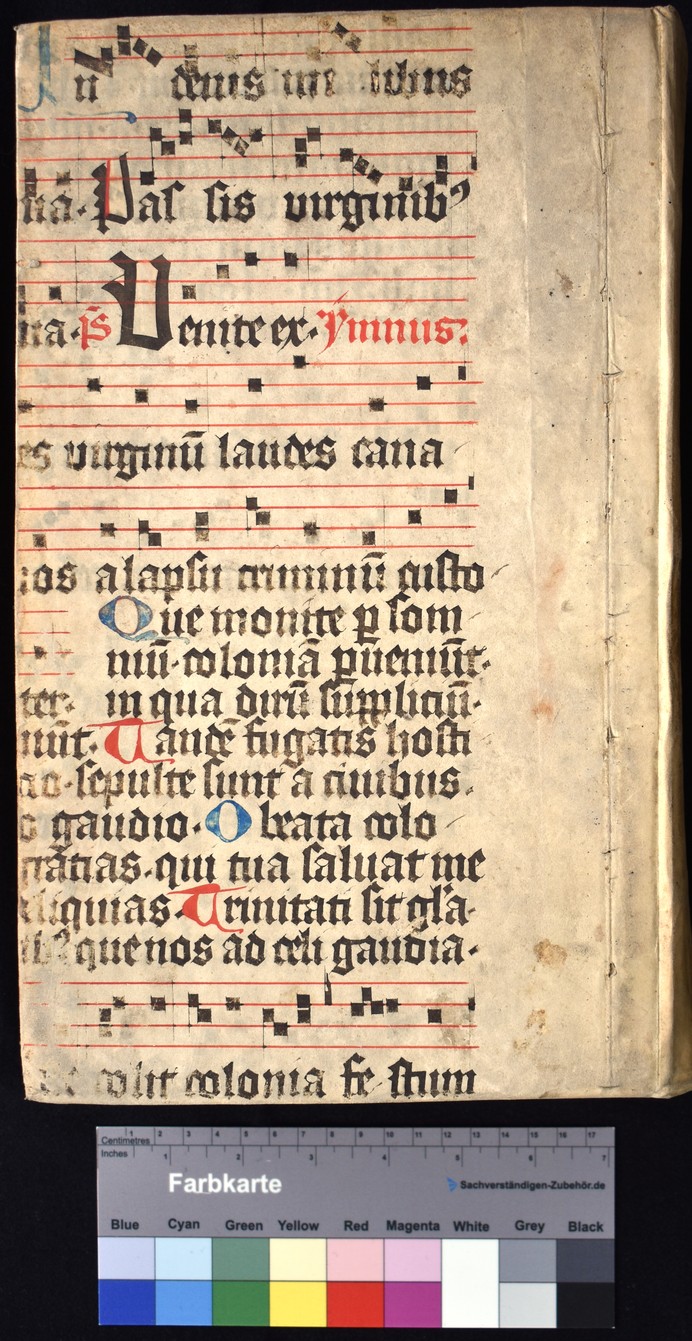 In denis libus
na. Pas sis virginibꝰ
na. ps Venite ex. Ymnus.
es virginū laudes cana
ros a lapsu criminū custo
Que monite ꝑ som
niū. coloniā ꝑueniūt.
ter. in qua dirū supplitiū.
iūt. Tandē fugatis hosti
do. sepulte sunt a ciuibus.
o gaudio. O beata colo
grātias. qui tua saluat me
liquias. Trinitati sit gl'a.
ibꝰ que nos ad celi gaudia.
colit colonia fe stum
Centimetres 1 2 3 4 5 6 7 8 9 10 11 12 13 14 15 16 17
Inches 1 2 3 4 5 6 7
Farbkarte Sachverständigen-Zubehör.de
Blue Cyan Green Yellow Red Magenta White Grey Black